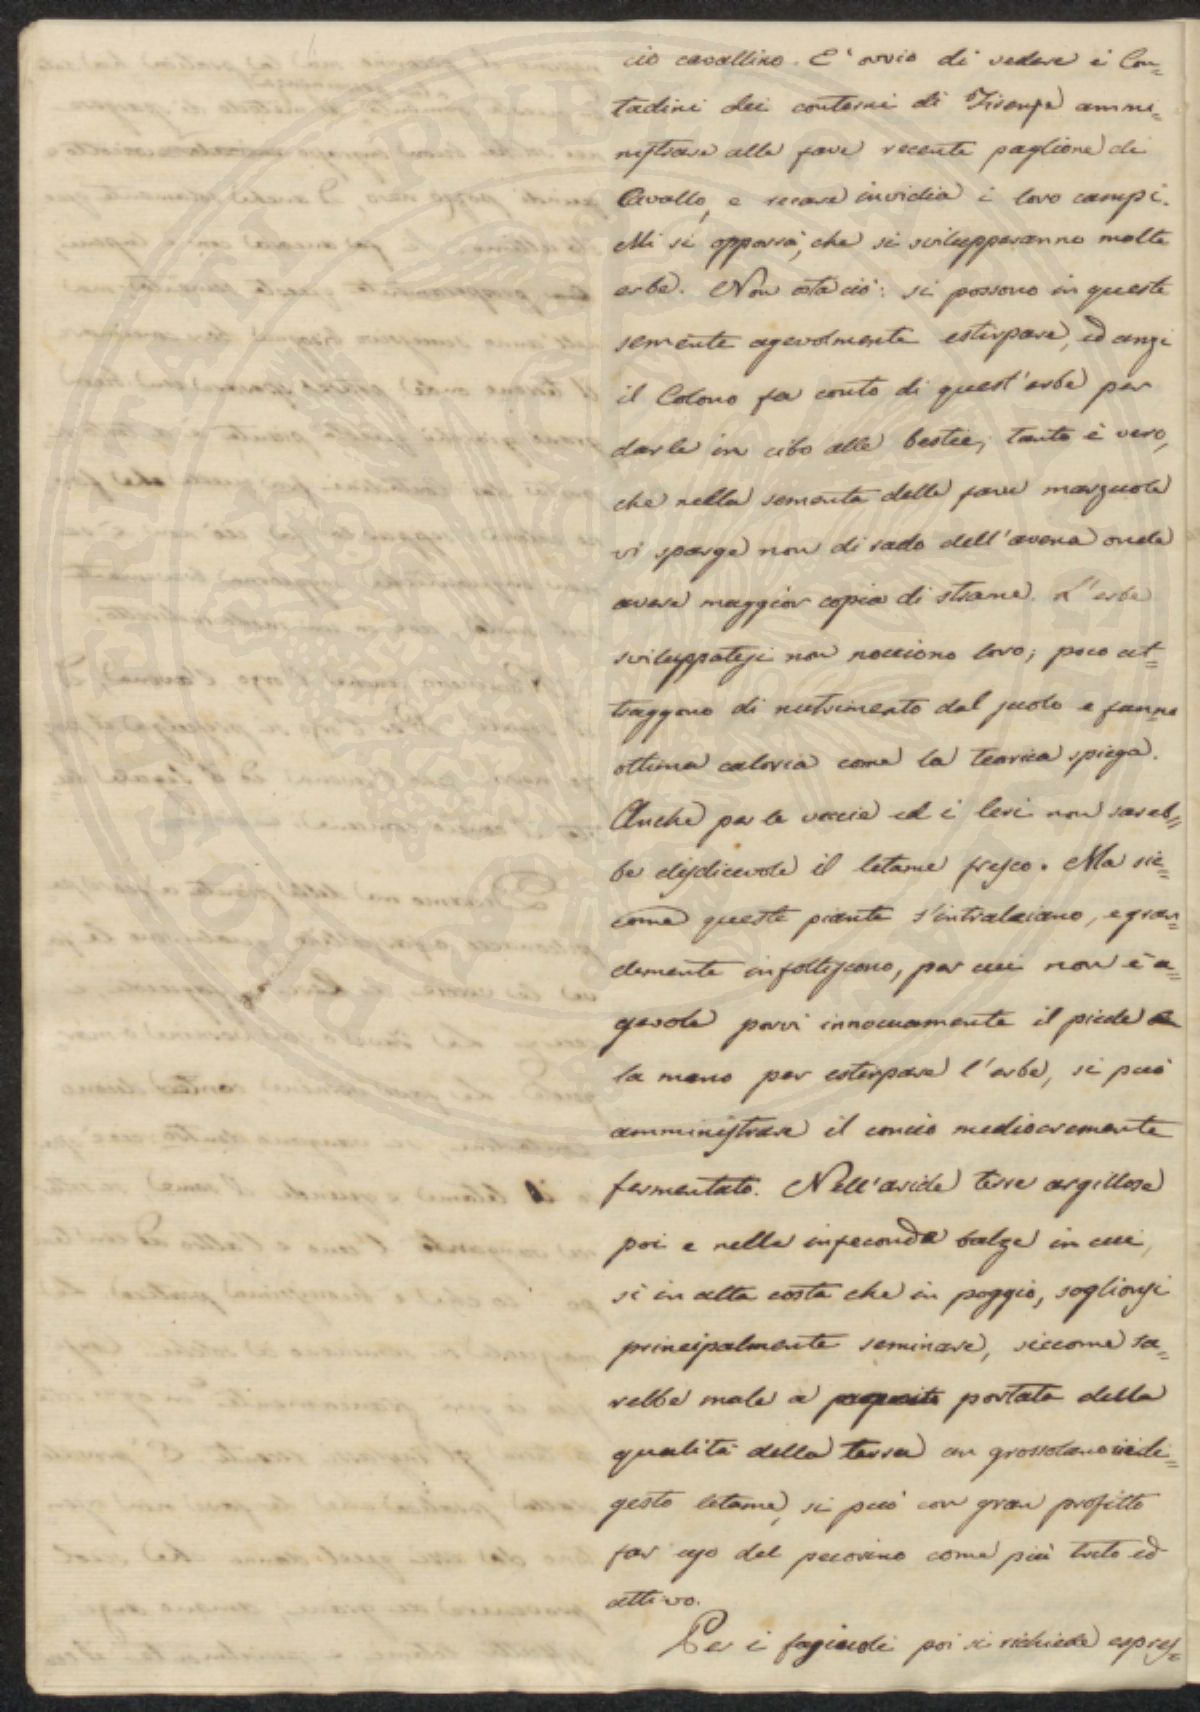 cio cavallino. E' ovvio di vedere i Con=
tadini dei contorni di Firenze ammi=
nistrare alle fave recente paglione di
Cavallo, e recare invidia i loro campi.
Mi si opporrà, che si svilupperanno molte
erbe. Non osta ciò: si possono in queste
semente agevolmente estirpare, ed anzi
il Colono fa conto di quest'erbe per
darle in cibo alle bestie; tanto è vero,
che nella sementa delle fave marzuole
vi sparge non di rado dell'avena onde
avere maggior copia di strame. L'erbe
sviluppatesi non nocciono loro; poco at=
traggono di nutrimento dal suolo e fanno
ottima caloria come la teorica spiega.
Anche per le veccie ed i leri non sareb=
be disdicevole il letame fresco. Ma sic=
come queste piante s'intralciano, e gran=
demente infoltiscono, per cui non è a=
gevole porvi innocuamente il piede e
la mano per estirpare l'erbe, si può
amministrare il concio mediocremente
fermentato. Nell'aride terre argillose
poi e nelle infeconde balze in cui,
sì in alta costa che in poggio, soglionsi
principalmente seminare, siccome sa=
rebbe male a portata della
qualità della terra un grossolano indi=
gesto letame, si può con gran profitto
far uso del pecorino come più trito ed
attivo.
Per i fagiuoli poi si richiede espres=